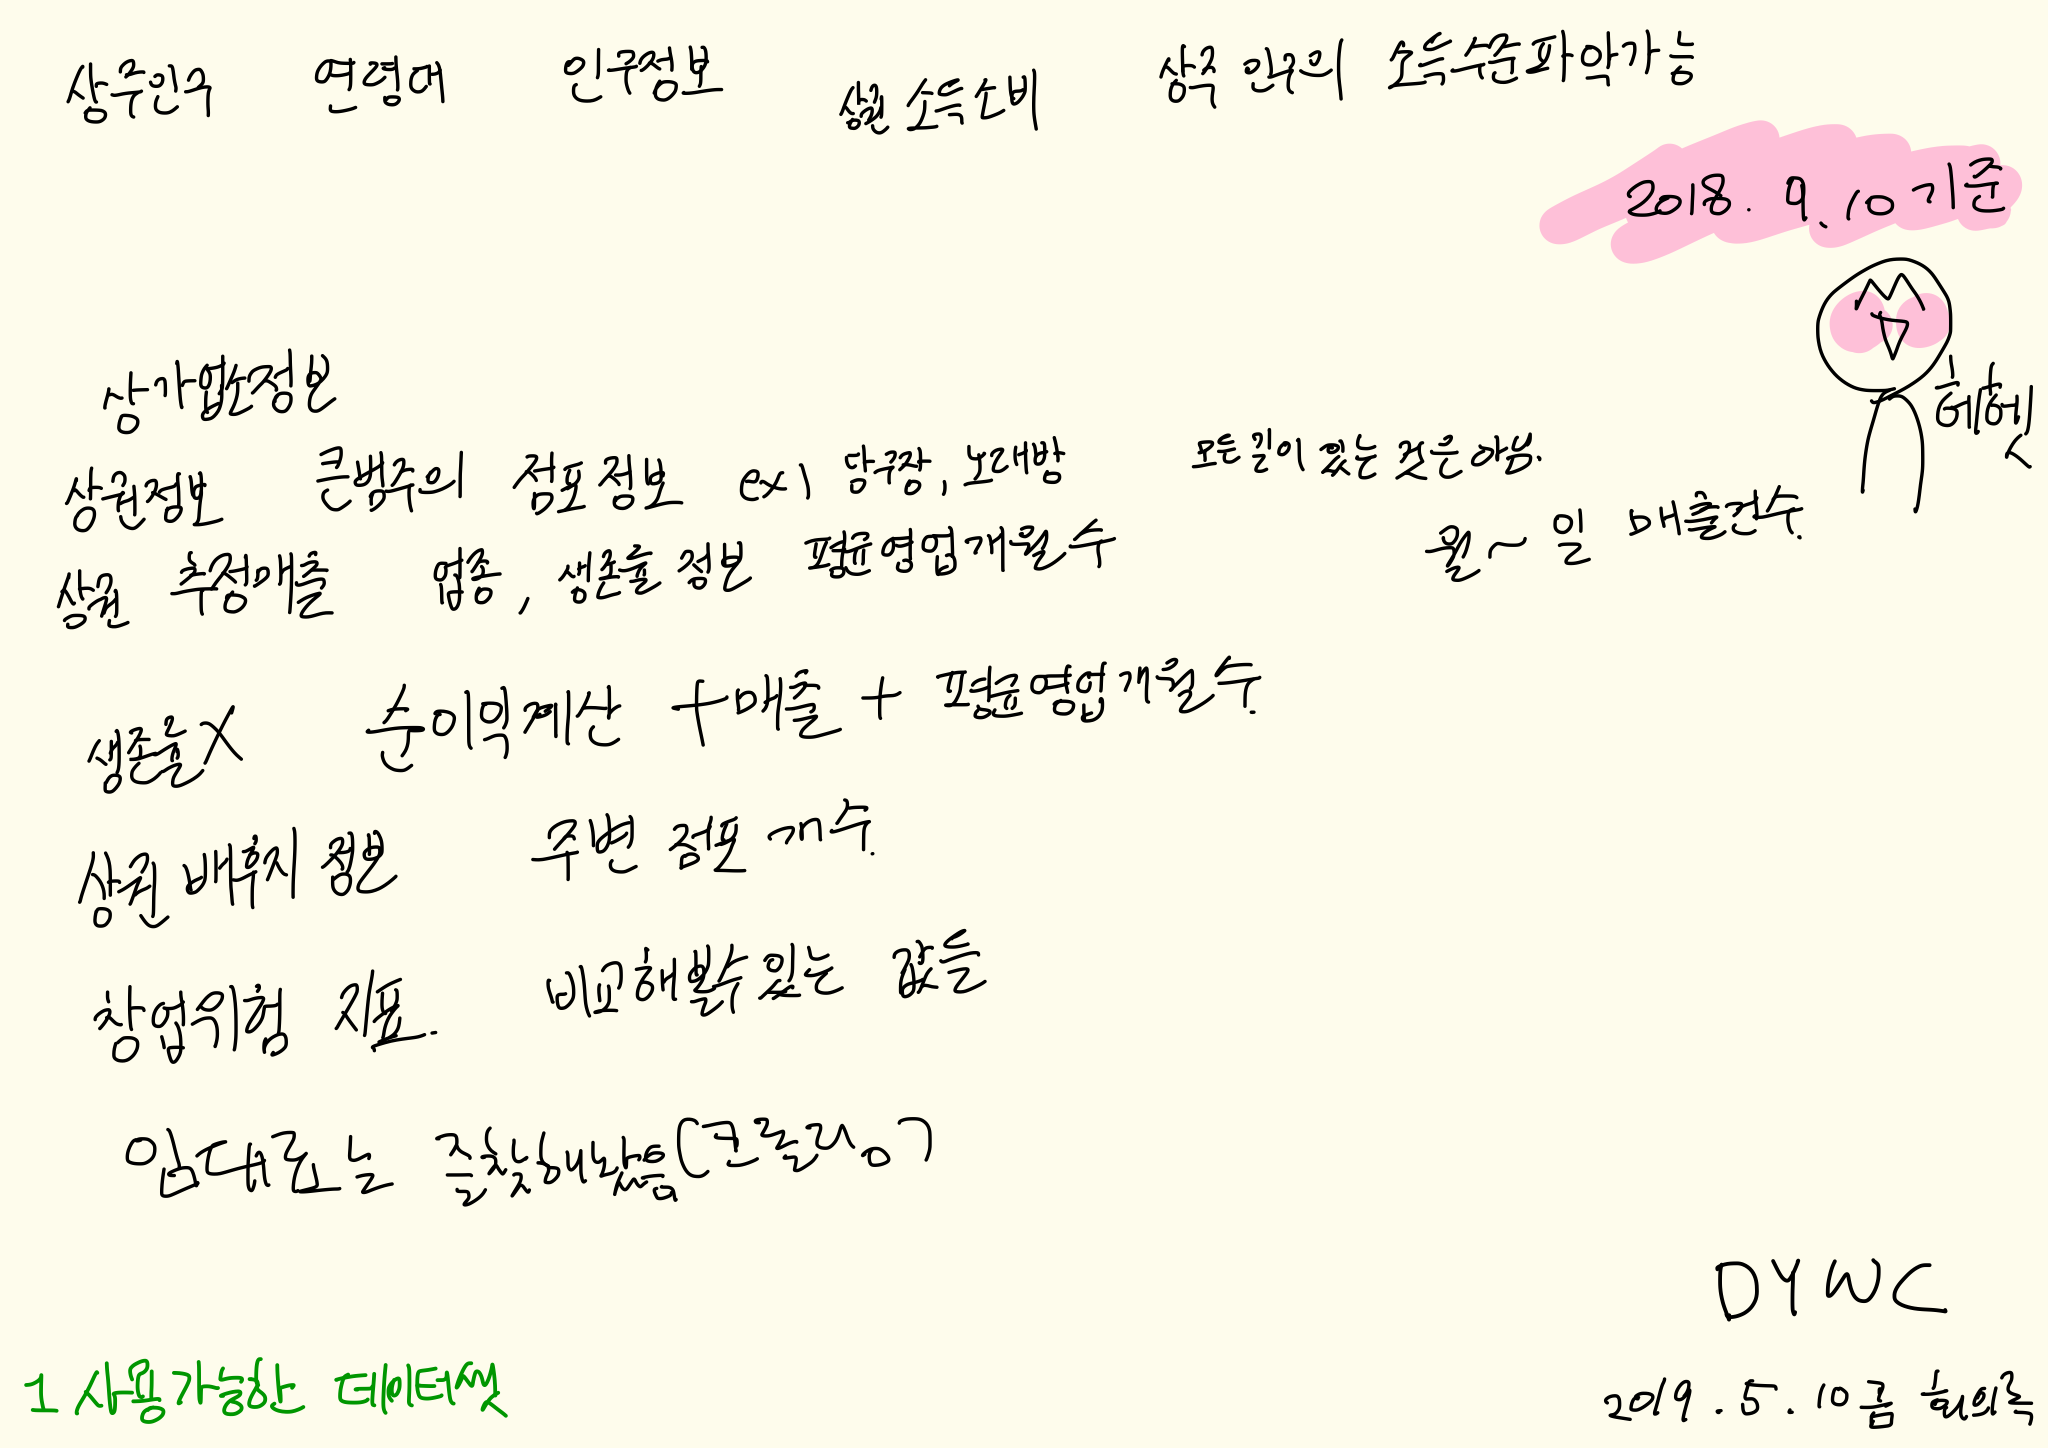 상주인구 연령대 인구정보 상권 소득소비 상주 인구의 소득수준파악가능
2018. 9. 10 기준
헤헷
상가업소정보
상권정보 큰범주의 점포정보 ex) 당구장, 노래방 모든 길이 있는 것은 아님.
상권 추정매출 업종, 생존률 정보 평균영업개월수 월~일 매출건수.
생존률X 순이익계산 + 매출 + 평균영업개월수.
상권 배후지 정보 주변 점포 개수.
창업위험 지표. 비교해볼수있는 값들
임대료는 줄찾해놨음(크롤링
DYWC
1 사용가능한 데이터셋
2019. 5. 10 금 회의록